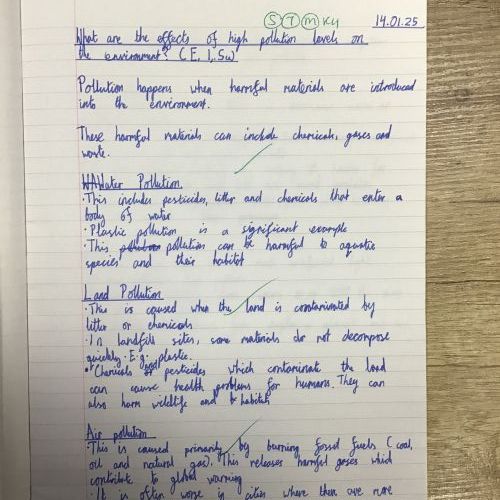 S T M K4 14.01.25
What are the effects of high pollution levels on
the environment? (E, I, Sw)
Pollution happens when harmful materials are introduced
into the environment.
These harmful materials can include chemicals, gases and
waste.
Water Pollution.
· This includes pesticides, litter and chemicals that enter a
body of water
· Plastic pollution is a significant example
· This pollution can be harmful to aquatic
species and their habitat
Land Pollution
· This is caused when the land is contaminated by
litter or chemicals
· In landfill sites, some materials do not decompose
quickly. E.g. plastic.
· Chemicals and pesticides which contaminate the land
can cause health problems for humans. They can
also harm wildlife and habitats
Air pollution
· This is caused primarily by burning fossil fuels (coal,
oil and natural gas). This releases harmful gases which
contribute to global warming
· It is often worse in cities where there are more